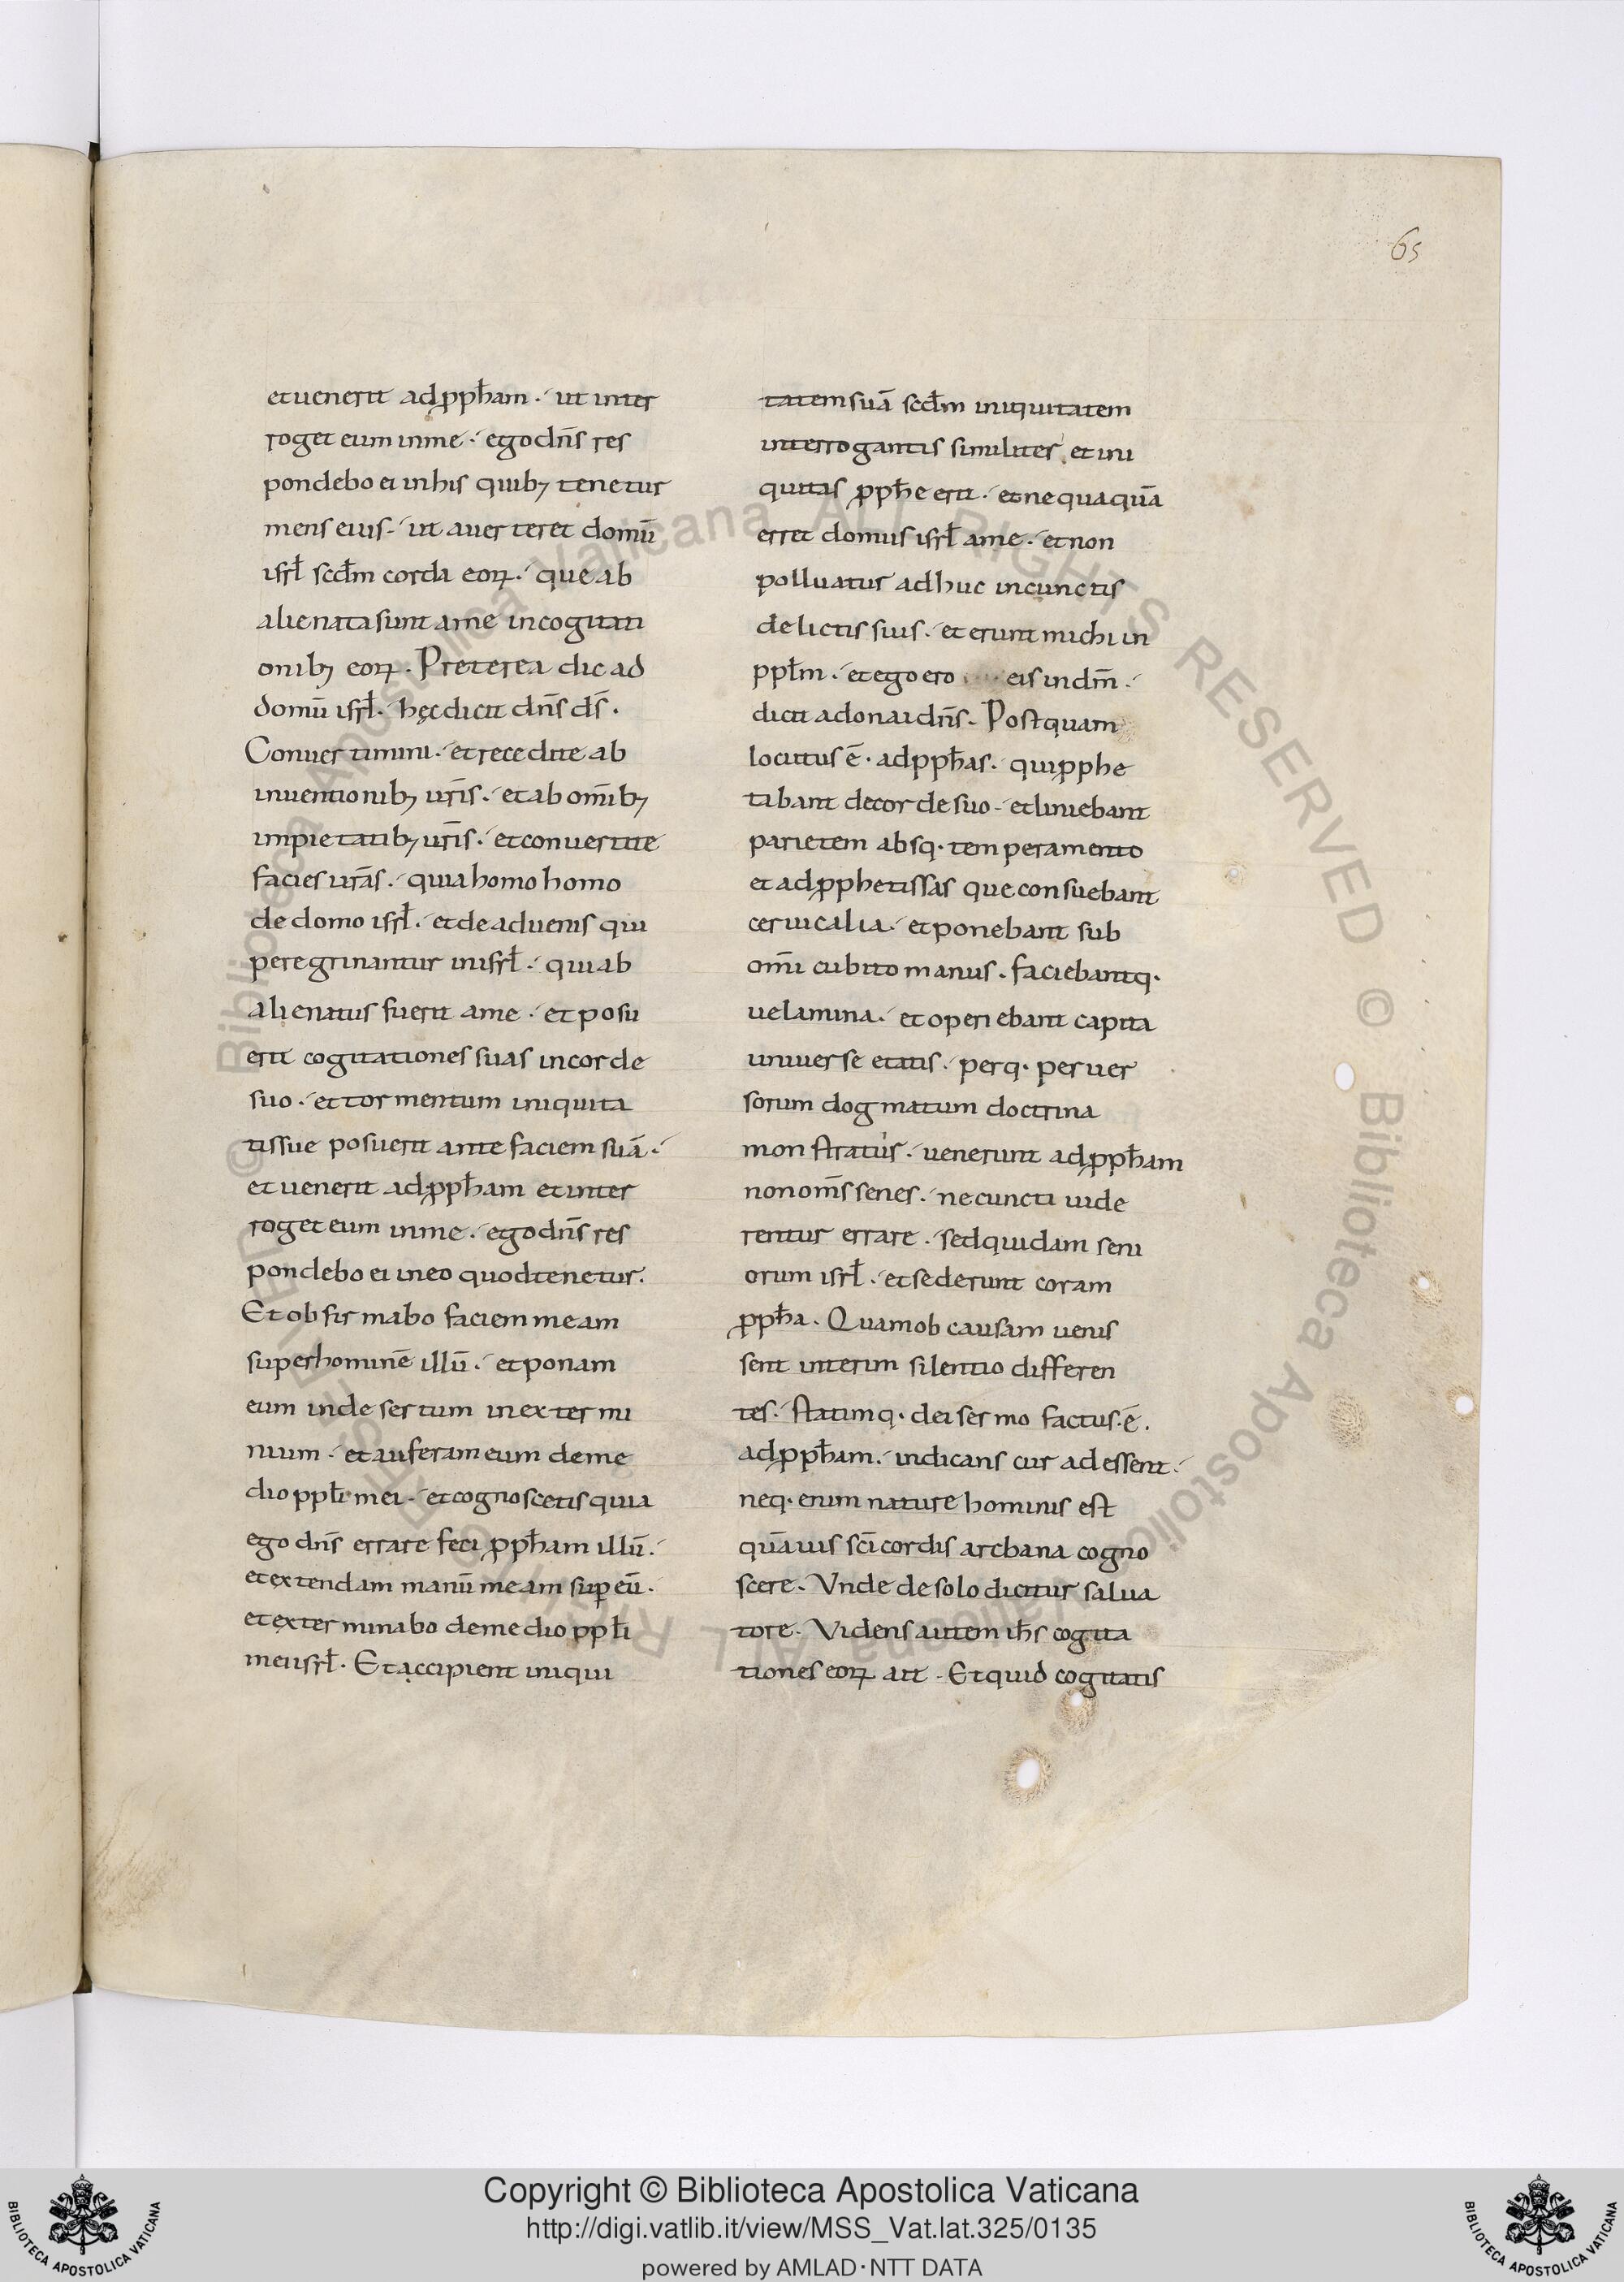 65
et uenerit ad ꝓpħam. ut inter
roget eum in me. ego dn̄s res
pondebo ei in his quibꝫ tenetur
mens eius. ut auerteret domū
isrł scd̄m corda eoꝝ. que ab
alienata sunt a me in cogitati
onibꝫ eoꝝ. Preterea dic ad
domū isrł. hęc dicit dn̄s ds̄.
Conuertimini. et recedite ab
inuentionibꝫ ur̄is. et ab om̄ibꝫ
impietatibꝫ ur̄is. et conuertite
facies ur̄as. quia homo homo
de domo isrł. et de aduenis qui
peregrinantur in isrł. qui ab
alienatus fuerit a me. et posu
erit cogitationes suas in corde
suo. et tormentum iniquita
tis sue posuerit ante faciem suā.
et uenerit ad ꝓpħam et inter
roget eum in me. ego dn̄s res
pondebo ei in eo quod tenetur.
Et obfirmabo faciem meam
super hominē illū. et ponam
eum in desertum in extermi
nium. et auferam eum de me
dio ppłi mei. et cognoscetis quia
ego dn̄s errare feci ꝓpħam illū.
et extendam manū meam suꝑ eū.
et exterminabo de medio ppłi
mei isrł. Et accipient iniqui
tatem suā scd̄m iniquitatem
interrogantis similiter et ini
quitas ꝓpħe erit. et nequaquā
erret domus isrł a me. et non
polluatur adhuc in cunctis
delictis suis. et erunt michi in
ppłm. et ego ero eis in dm̄.
dicit adonai dn̄s. Postquam
locutus ē. ad ꝓpħas. qui ꝓphe
tabant de corde suo. et liniebant
parietem absq. temperamento
et ad ꝓphetissas que consuebant
ceruicalia. et ponebant sub
om̄i cubito manus. faciebantq.
uelamina. et operiebant capita
uniuerse etatis. perq. peruer
sorum dogmatum doctrina
monstratur. uenerunt ad ꝓpħam
non om̄s senes. ne cuncti uide
rentur errare. sed quidam seni
orum isrł. et sederunt coram
ꝓpħa. Quam ob causam uenis
sent interim silentio differen
tes. statimq. dei sermo factus. ē.
ad ꝓpħam. indicans cur adessent.
neq. enim nature hominis est
quāuis sc̄i cordis archana cogno
scere. Vnde de solo dicitur salua
tore. Videns autem ih̄s cogita
tiones eoꝝ ait. Et quid cogitatis
Copyright © Biblioteca Apostolica Vaticana
http://digi.vatlib.it/view/MSS_Vat.lat.325/0135
powered by AMLAD·NTT DATA